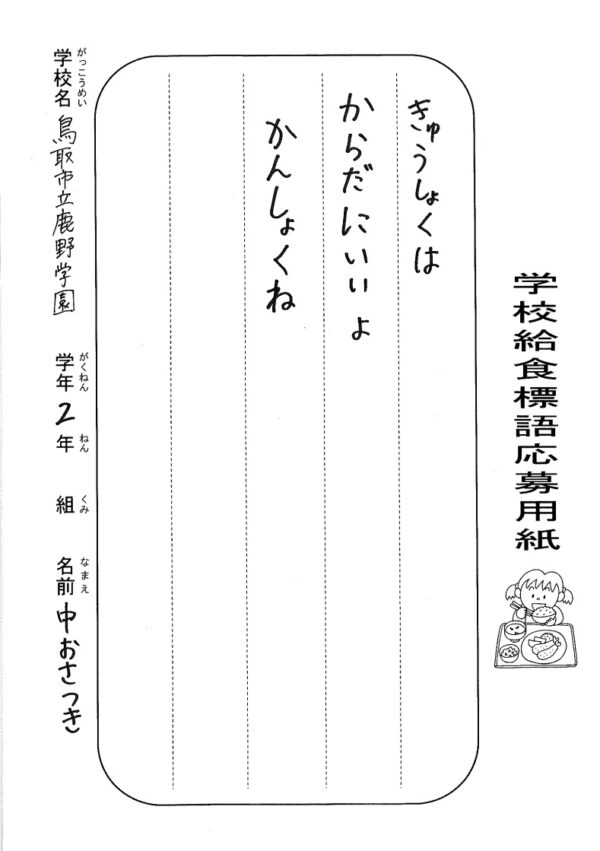 学校給食標語応募用紙
きゅうしょくは
からだにいいよ
かんしょくね
学校名 がっこうめい 鳥取市立鹿野学園
学年 がくねん 2年 ねん 組 くみ 名前 なまえ 中おさつき